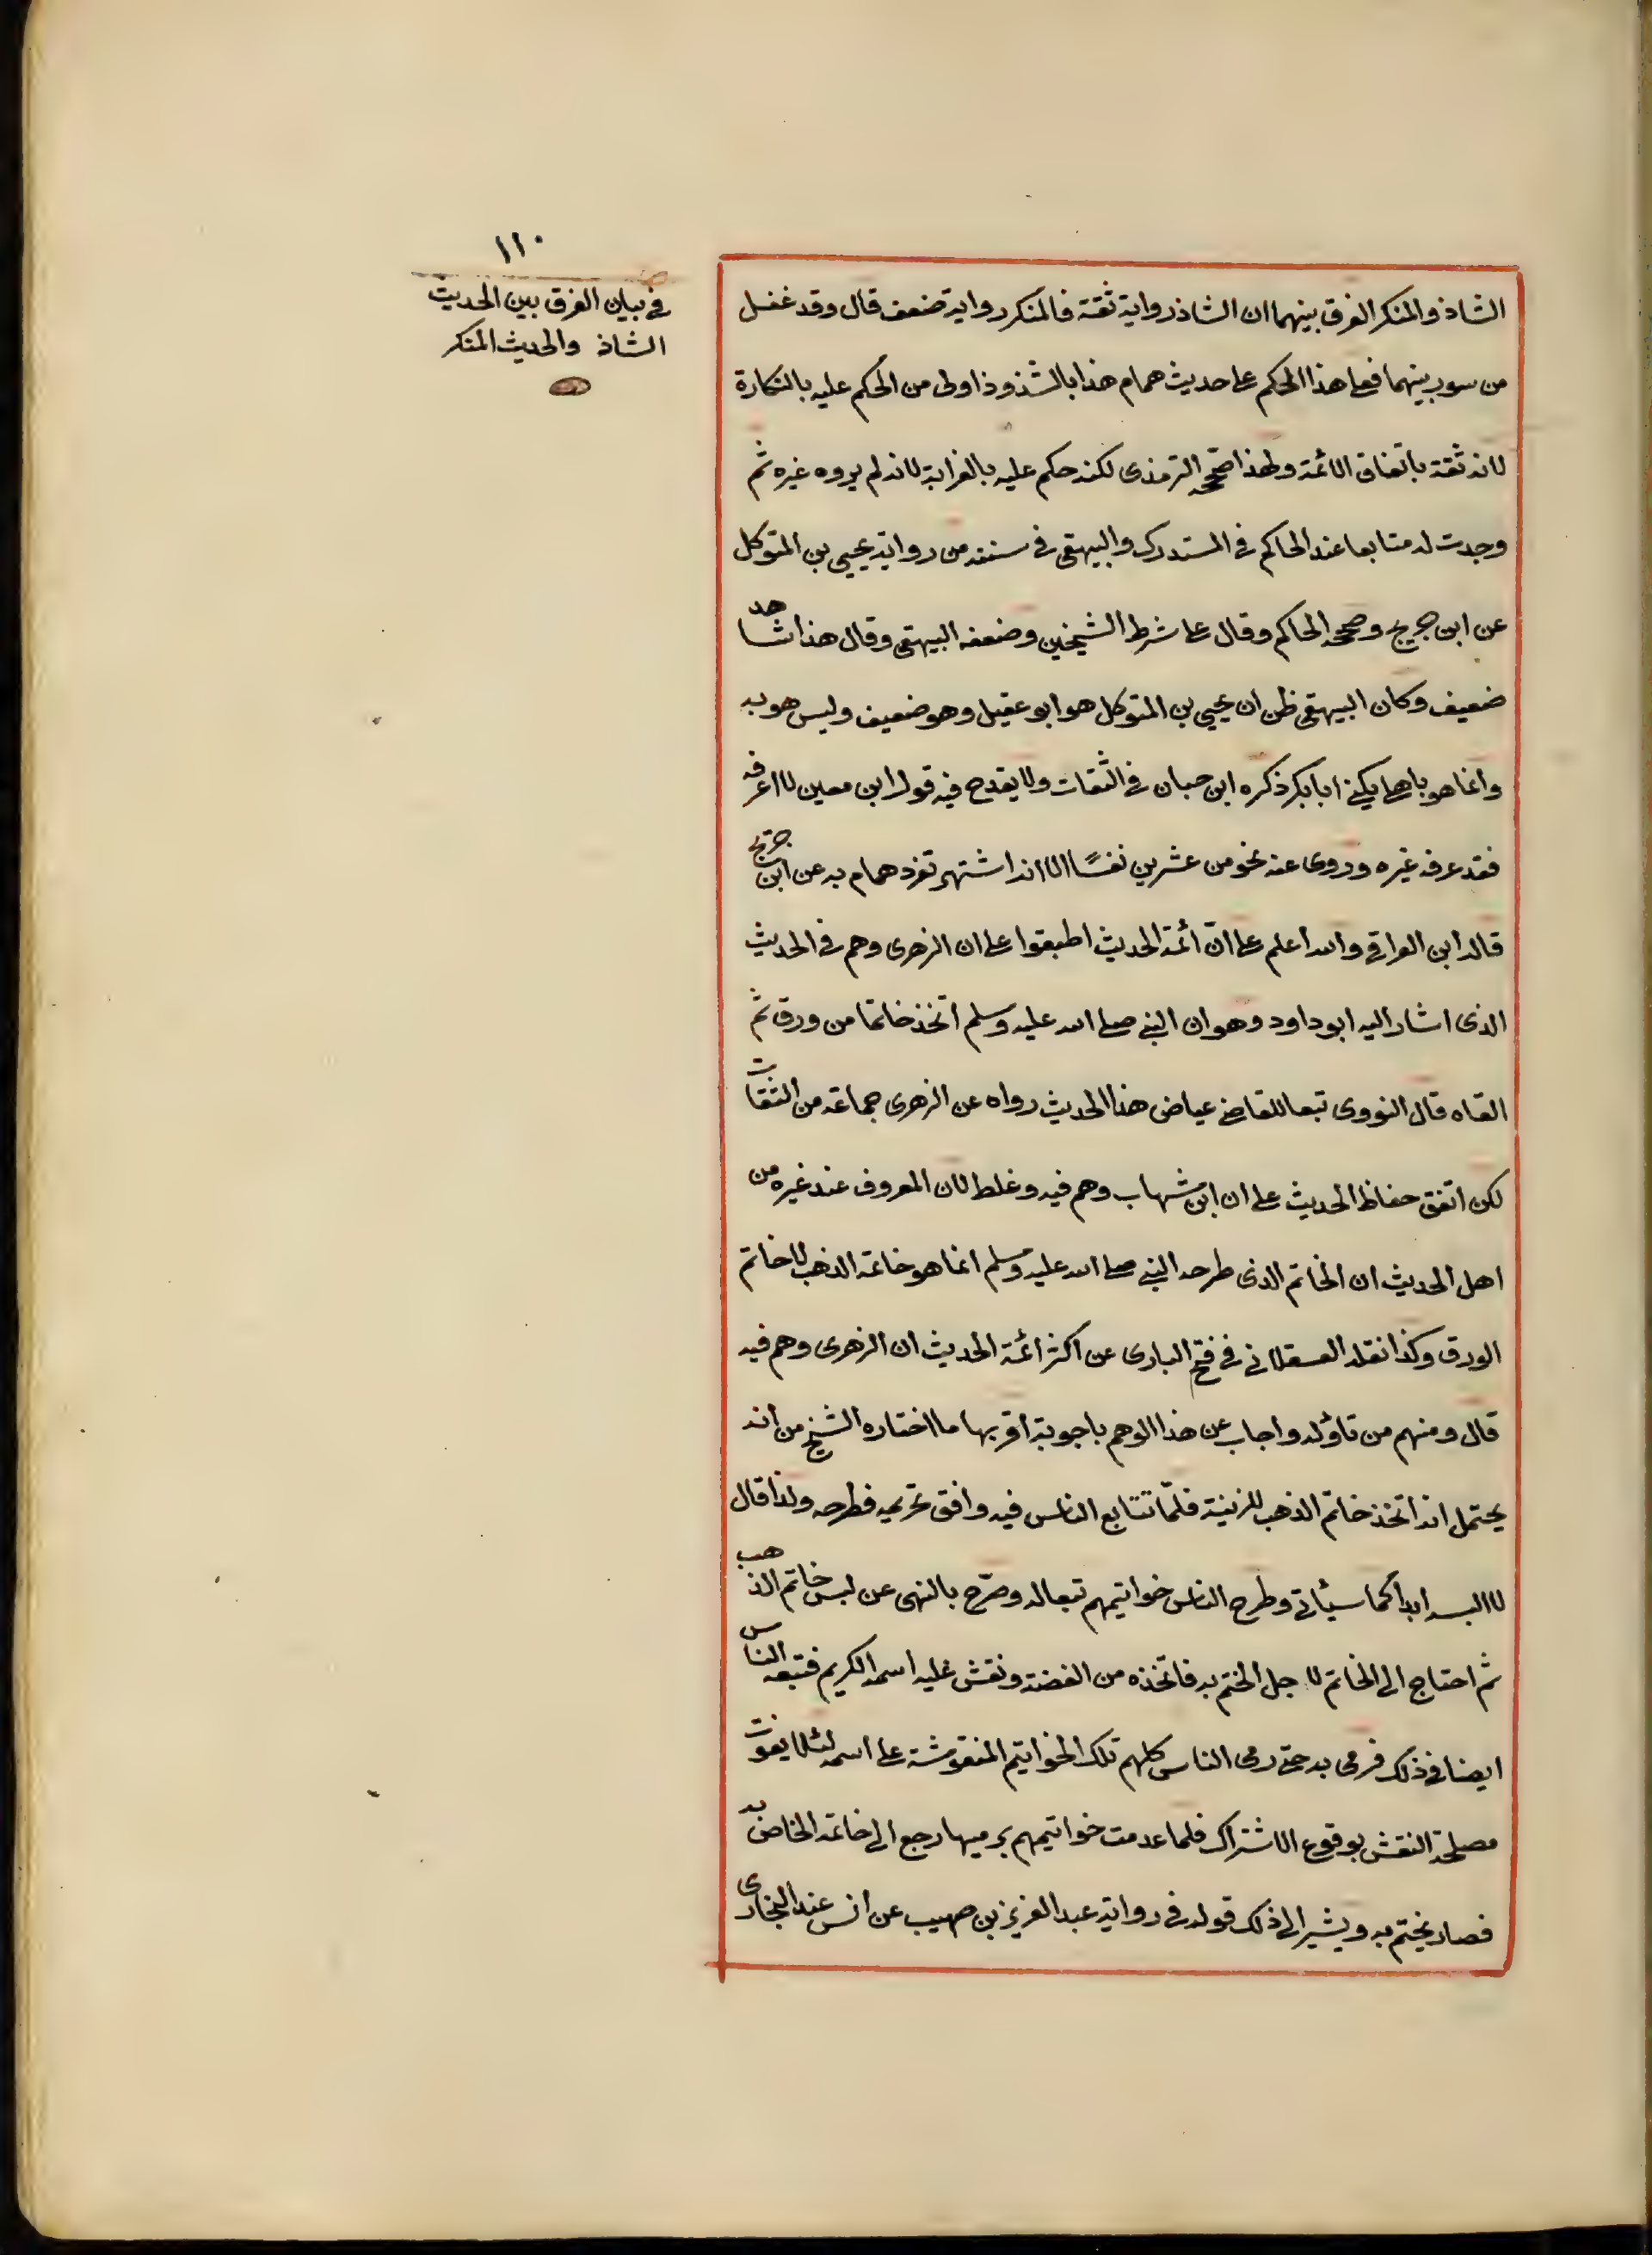 ١١٠
في بيان الفرق بين الحديث
الشاذ والحديث المنكر
الشاذ والمنكر الفرق بينهما ان الشاذ رواية ثقة فالمنكر رواية ضعف قال وقد غفل
من سوى بينهما فعلى هذا الحكم على حديث همام هذا بالشذوذ اولى من الحكم عليه بالنكارة
لانه ثقة باتفاق الائمة ولهذا صححه الترمذى لكنه حكم عليه بالغرابة لانه لم يروه غيره ثم
وجدت له متابعا عند الحاكم في المستدرك والبيهقى في سننه من رواية يحيى بن المتوكل
عن ابن جريج وصححه الحاكم وقال على شرط الشيخين وضعفه البيهقى وقال هذا شاهد
ضعيف وكان البيهقى ظن ان يحيى بن المتوكل هو ابو عقيل وهو ضعيف وليس هو به
وانما هو باهلى يكنى ابا بكر ذكره ابن حبان في الثقات ولا يقدح فيه قول ابن معين لا اعرفه
فقد عرفه غيره وروى عنه نحو من عشرين نفسًا الا انه اشتهر تفرد همام به عن ابن جريج
قاله ابن العراقي والله اعلم على انّ ائمة الحديث اطبقوا على ان الزهرى وهم في الحديث
الذى اشار اليه ابو داود وهو ان النبي صلى الله عليه وسلم اتخذ خاتما من ورق ثم
القاه قال النووى تبعا للقاضي عياض هذا الحديث رواه عن الزهرى جماعة من الثقات
لكن اتفق حفاظ الحديث على ان ابن شهاب وهم فيه وغلط لان المعروف عند غيره من
اهل الحديث ان الخاتم الذى طرحه النبي صلى الله عليه وسلم انما هو خاتمه الذهب لا خاتم
الورق وكذا نقله العسقلاني في فتح البارى عن اكثر ائمة الحديث ان الزهرى وهم فيه
قال ومنهم من تاوّله واجاب عن هذا الوهم باجوبة اقربها ما اختاره الشيخ من انه
يحتمل انه اتخذ خاتم الذهب للزينة فلمّا تتابع الناس فيه وافق تحريمه فطرحه ولذا قال
لا البسه ابدا كما سيأتي وطرح الناس خواتيمهم تبعا له وصرّح بالنهى عن لبس خاتم الذهب
ثم احتاج الى الخاتم لاجل الختم به فاتخذه من الفضة ونقش عليه اسمه الكريم فتبعه الناس
ايضا في ذلك فرمى به حتى رمى الناس كلهم تلك الخواتيم المنقوشة على اسمه لئلا يفوت
مصلحة النقش بوقوع الاشتراك فلما عدمت خواتيمهم برميها رجع الى خاتمه الخاص به
فصار يختم به ويشير الى ذلك قوله في رواية عبد العزيز بن صهيب عن انس عند البخارى